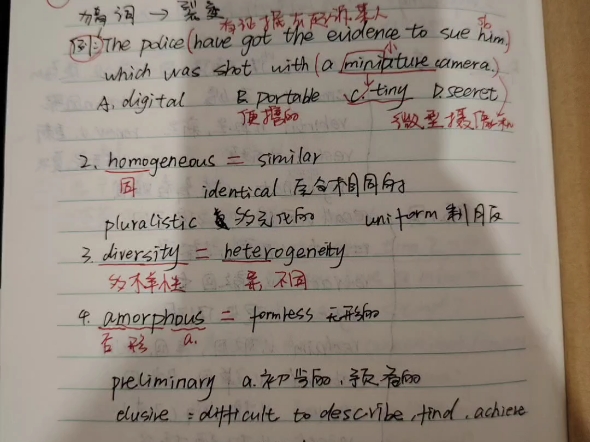 撝词 → 裂变
有证据去起诉某人
例: The police (have got the evidence to sue him,)
which was shot with (a miniature camera.)
A. digital B. portable C. tiny D. secret)
便携的 微型摄像机
2. homogeneous = similar
同 identical 完全相同的
pluralistic 多元化的 uniform 制服
3. diversity = heterogeneity
多样性 异 不同
4. amorphous = formless 无形的
否 形 a.
preliminary a. 初步的、预备的
elusive = difficult to describe, find, achieve